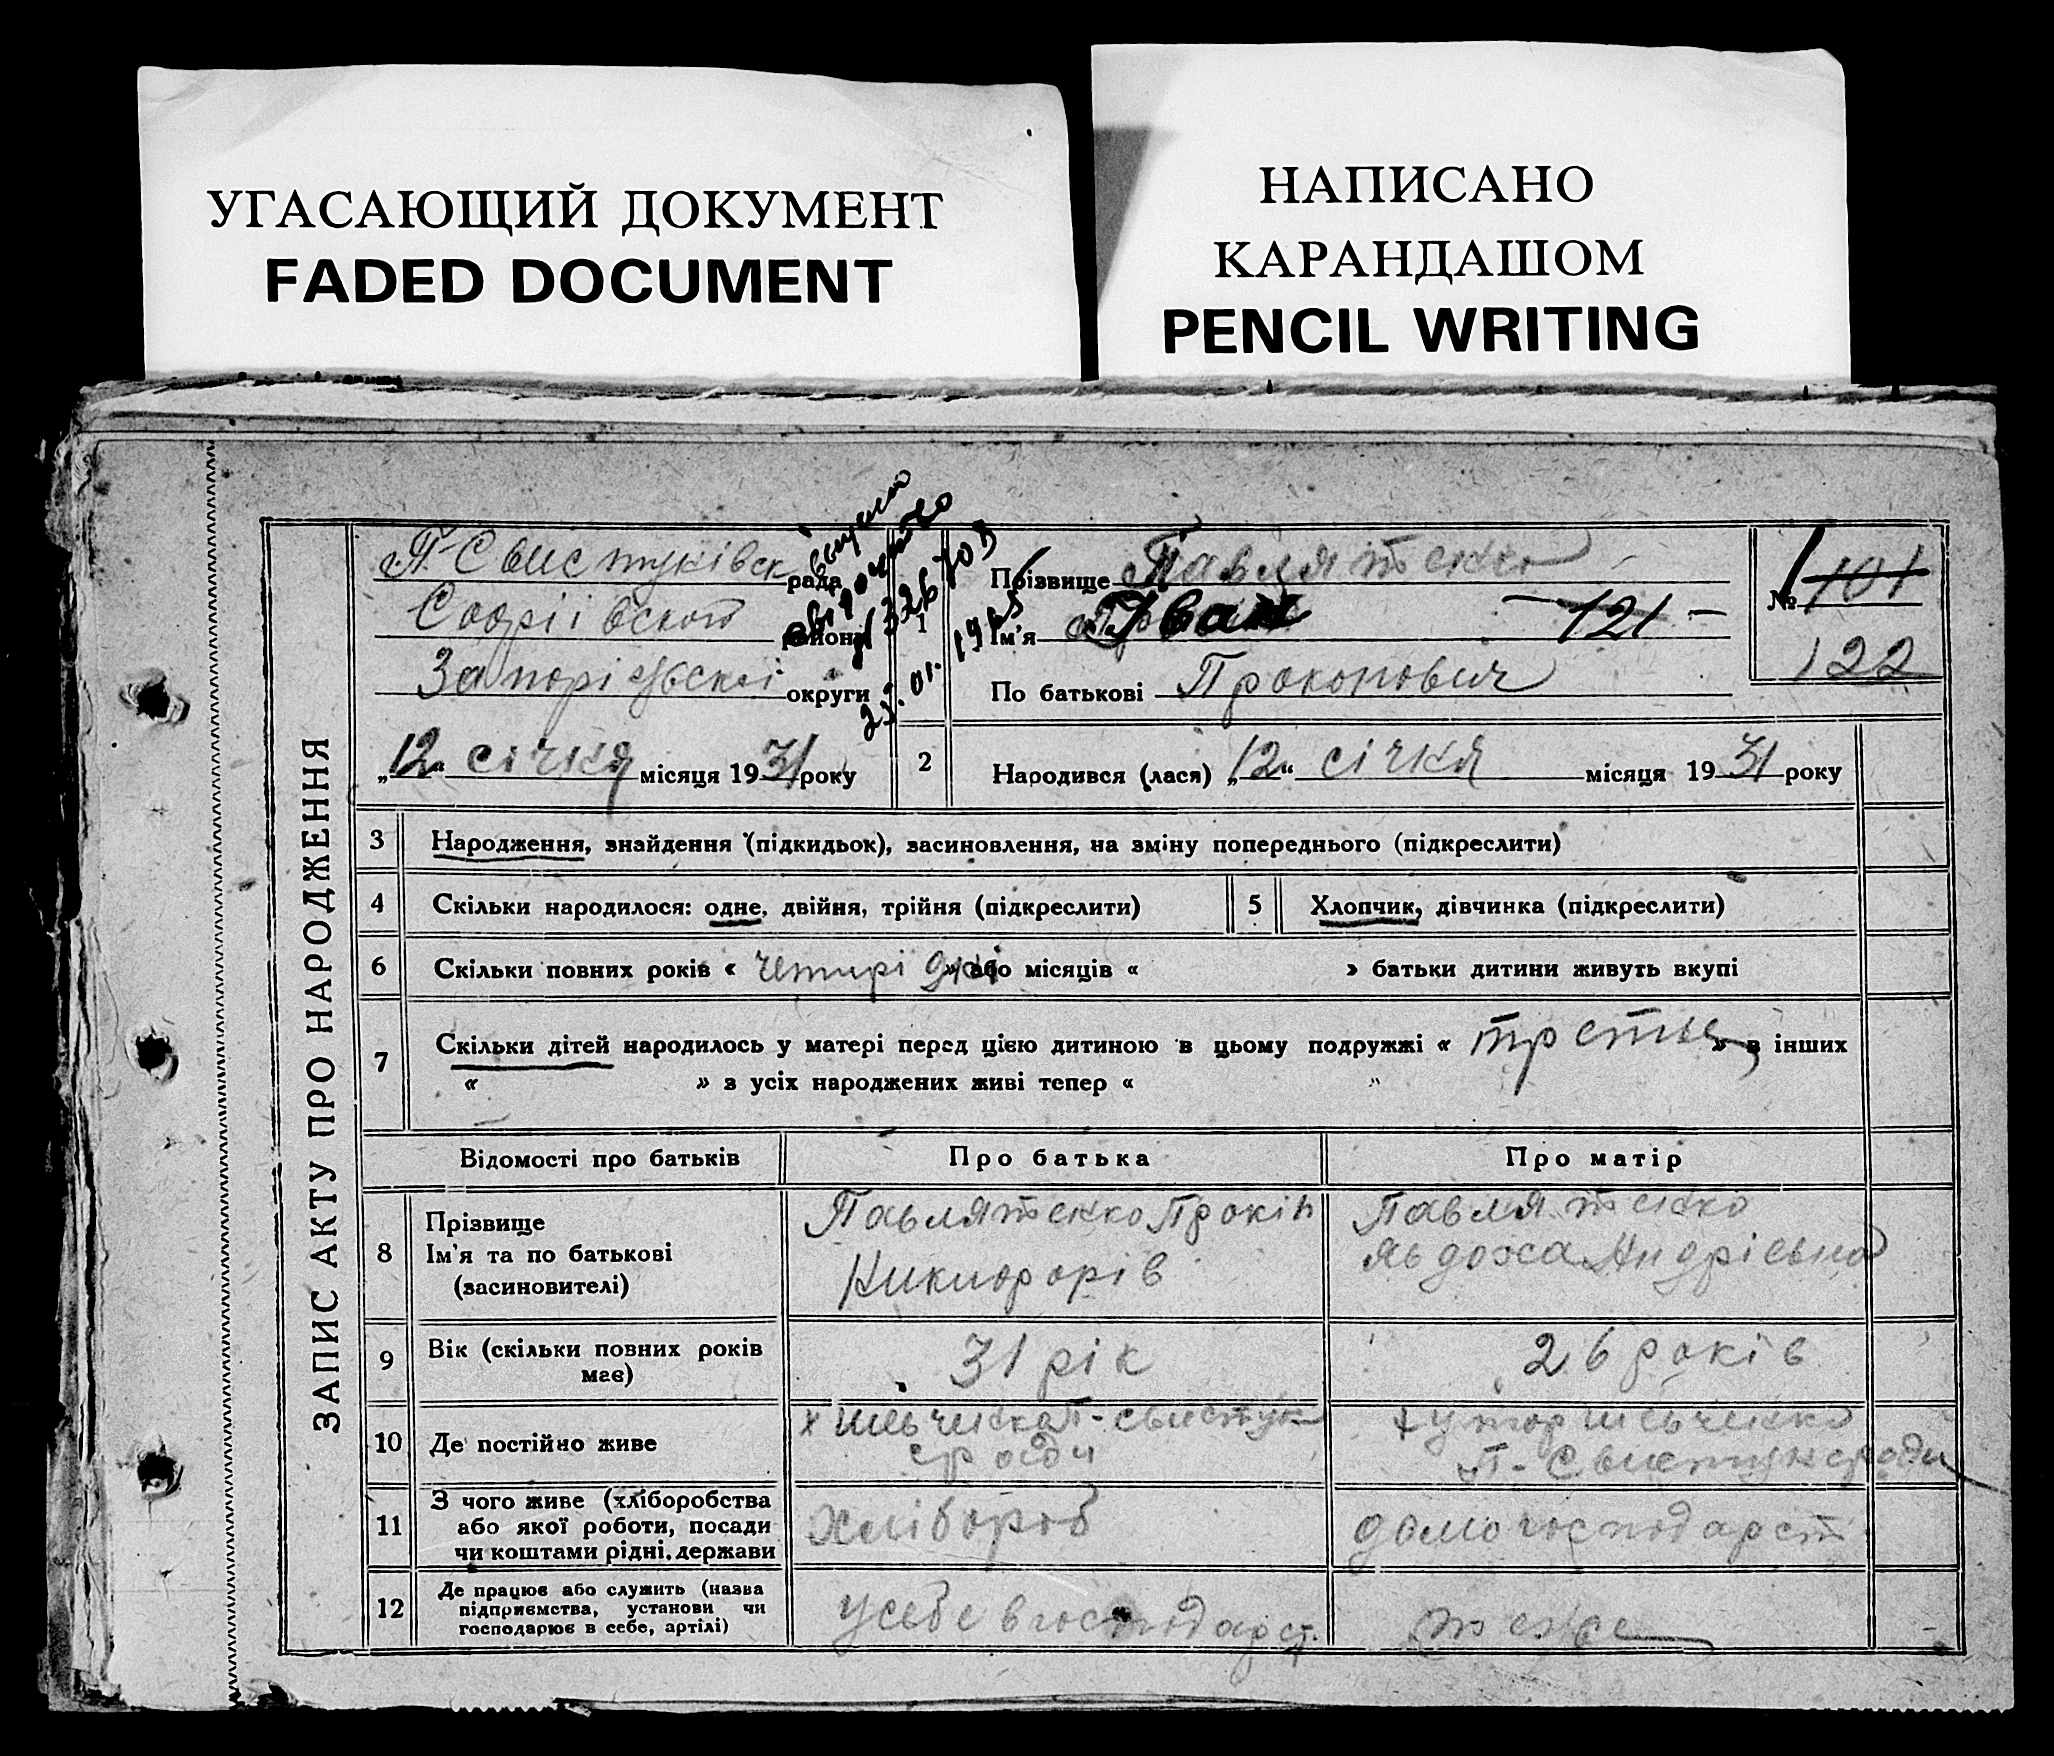 УГАСАЮЩИЙ ДОКУМЕНТ
FADED DOCUMENT
НАПИСАНО
КАРАНДАШОМ
PENCIL WRITING
ЗАПИС АКТУ ПРО НАРОДЖЕННЯ
П-Свистуківск рада
Софіівской району
Запоріжскої округи
„12“ січня місяця 1931 року
23.01.1965
1
Прізвище Павлятенко
Ім'я Іван -121-
По батькові Прокопович
№ 101
122
2
Народився (лася) „12“ січня місяця 1931 року
3 Народження, знайдення (підкидьок), засиновлення, на зміну попереднього (підкреслити)
4 Скільки народилося: одне, двійня, трійня (підкреслити)
5 Хлопчик, дівчинка (підкреслити)
6 Скільки повних років « четирі дні » або місяців « » батьки дитини живуть вкупі
7 Скільки дітей народилось у матері перед цією дитиною в цьому подружжі « третьє » в інших
« » з усіх народжених живі тепер « »
Відомості про батьків Про батька Про матір
8 Прізвище
Ім'я та по батькові
(засиновителі)
Павлятенко Прокіп
Никифорів
Павлятенко
Явдоха Андрієвна
9 Вік (скільки повних років
має)
31 рік
26 років
10 Де постійно живе
х Шевченко П-Свистук
сради
хутор Шевченко
П-Свистук сради
11 З чого живе (хліборобства
або якої роботи, посади
чи коштами рідні, держави
хлібороб
домогосподарст
12 Де працює або служить (назва
підприємства, установи чи
господарює в себе, артілі)
у себе в господарст.
тоже